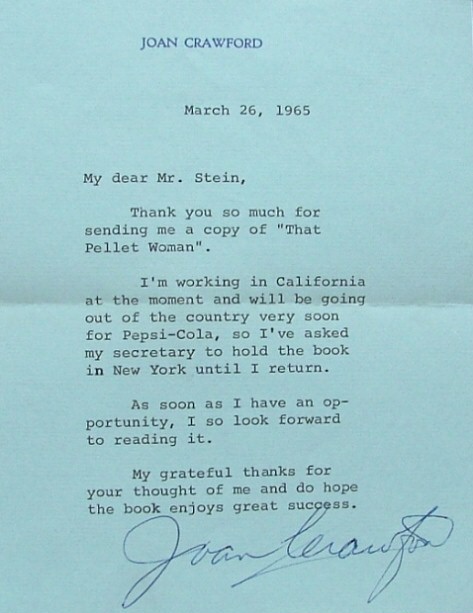 JOAN CRAWFORD
March 26, 1965
My dear Mr. Stein,
Thank you so much for
sending me a copy of "That
Pellet Woman".
I'm working in California
at the moment and will be going
out of the country very soon
for Pepsi-Cola, so I've asked
my secretary to hold the book
in New York until I return.
As soon as I have an op-
portunity, I so look forward
to reading it.
My grateful thanks for
your thought of me and do hope
the book enjoys great success.
Joan Crawford